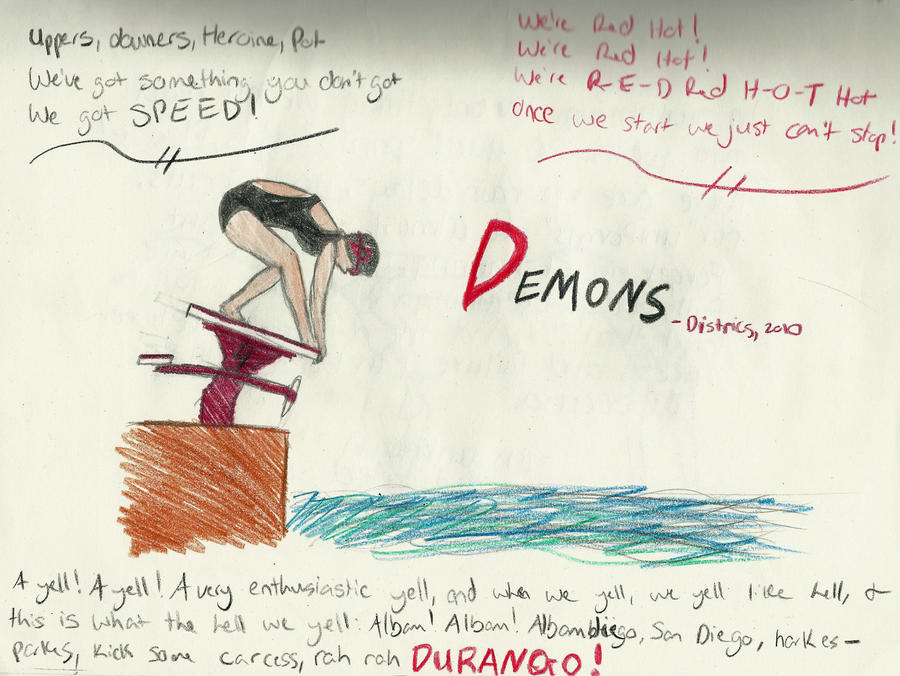 Uppers, downers, Heroine, Pot
We've got something you don't got
We got SPEED!
We're Red Hot!
We're Red Hot!
We're R-E-D Red H-O-T Hot
Once we start we just can't stop!
DEMONS
- Districs, 2010
4
A yell! A yell! A very enthusiastic yell, and when we yell, we yell like hell, &
this is what the hell we yell: Albam! Albam! San Diego, harkes-
parkus, kick some carcess, rah rah DURANGO!